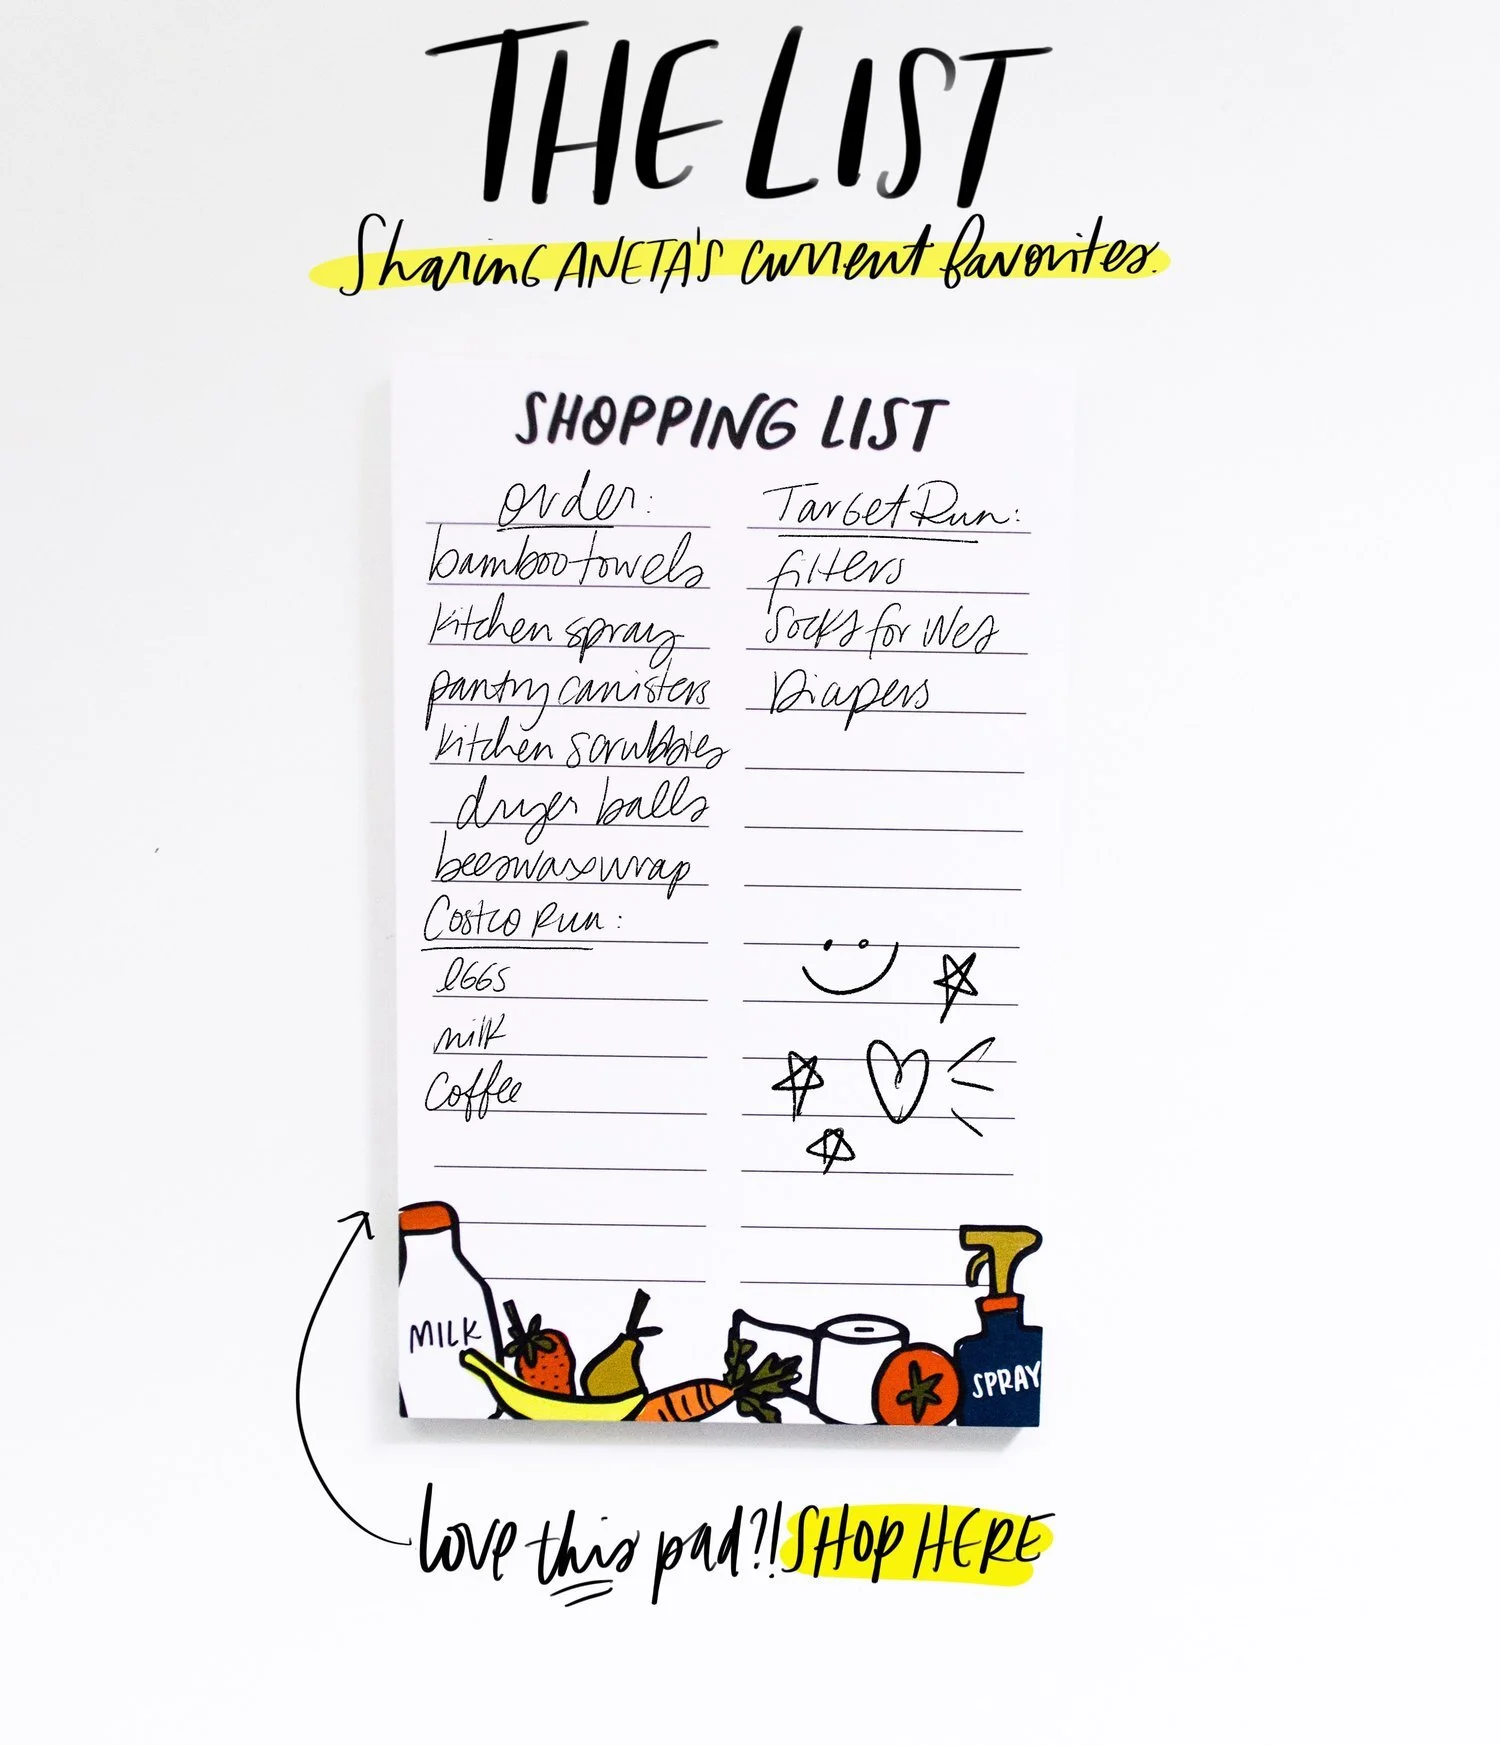 THE LIST
Sharing ANETA'S current favorites.
SHOPPING LIST
order:
bamboo towels
kitchen spray
pantry canisters
kitchen scrubbies
dryer balls
beeswax wrap
Costco Run:
eggs
milk
coffee
Target Run:
filters
socks for Wes
Diapers
MILK
SPRAY
love this pad?! SHOP HERE